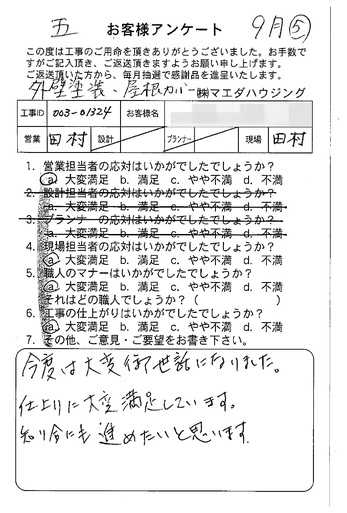 五 お客様アンケート 9月⑤
この度は工事のご用命を頂きありがとうございました。お手数で
すがご記入頂き、ご返送頂きますようお願い申し上げます。
ご返送頂いた方から、毎月抽選で感謝品を進呈いたします。
外壁塗装、屋根カバー ㈱マエダハウジング
工事ID 003-01324 お客様名
営業 田村 設計 プランナー 現場 田村
1. 営業担当者の応対はいかがでしたでしょうか？
a. 大変満足 b. 満足 c. やや不満 d. 不満
2. 設計担当者の応対はいかがでしたでしょうか？
a. 大変満足 b. 満足 c. やや不満 d. 不満
3. プランナーの応対はいかがでしたでしょうか？
a. 大変満足 b. 満足 c. やや不満 d. 不満
4. 現場担当者の応対はいかがでしたでしょうか？
a. 大変満足 b. 満足 c. やや不満 d. 不満
5. 職人のマナーはいかがでしたでしょうか？
a. 大変満足 b. 満足 c. やや不満 d. 不満
それはどの職人でしょうか？（ ）
6. 工事の仕上がりはいかがでしたでしょうか？
a. 大変満足 b. 満足 c. やや不満 d. 不満
7. その他、ご意見・ご要望をお書き下さい。
今度は大変御世話になりました。
仕上りに大変満足しています。
知り合にも進めたいと思います.